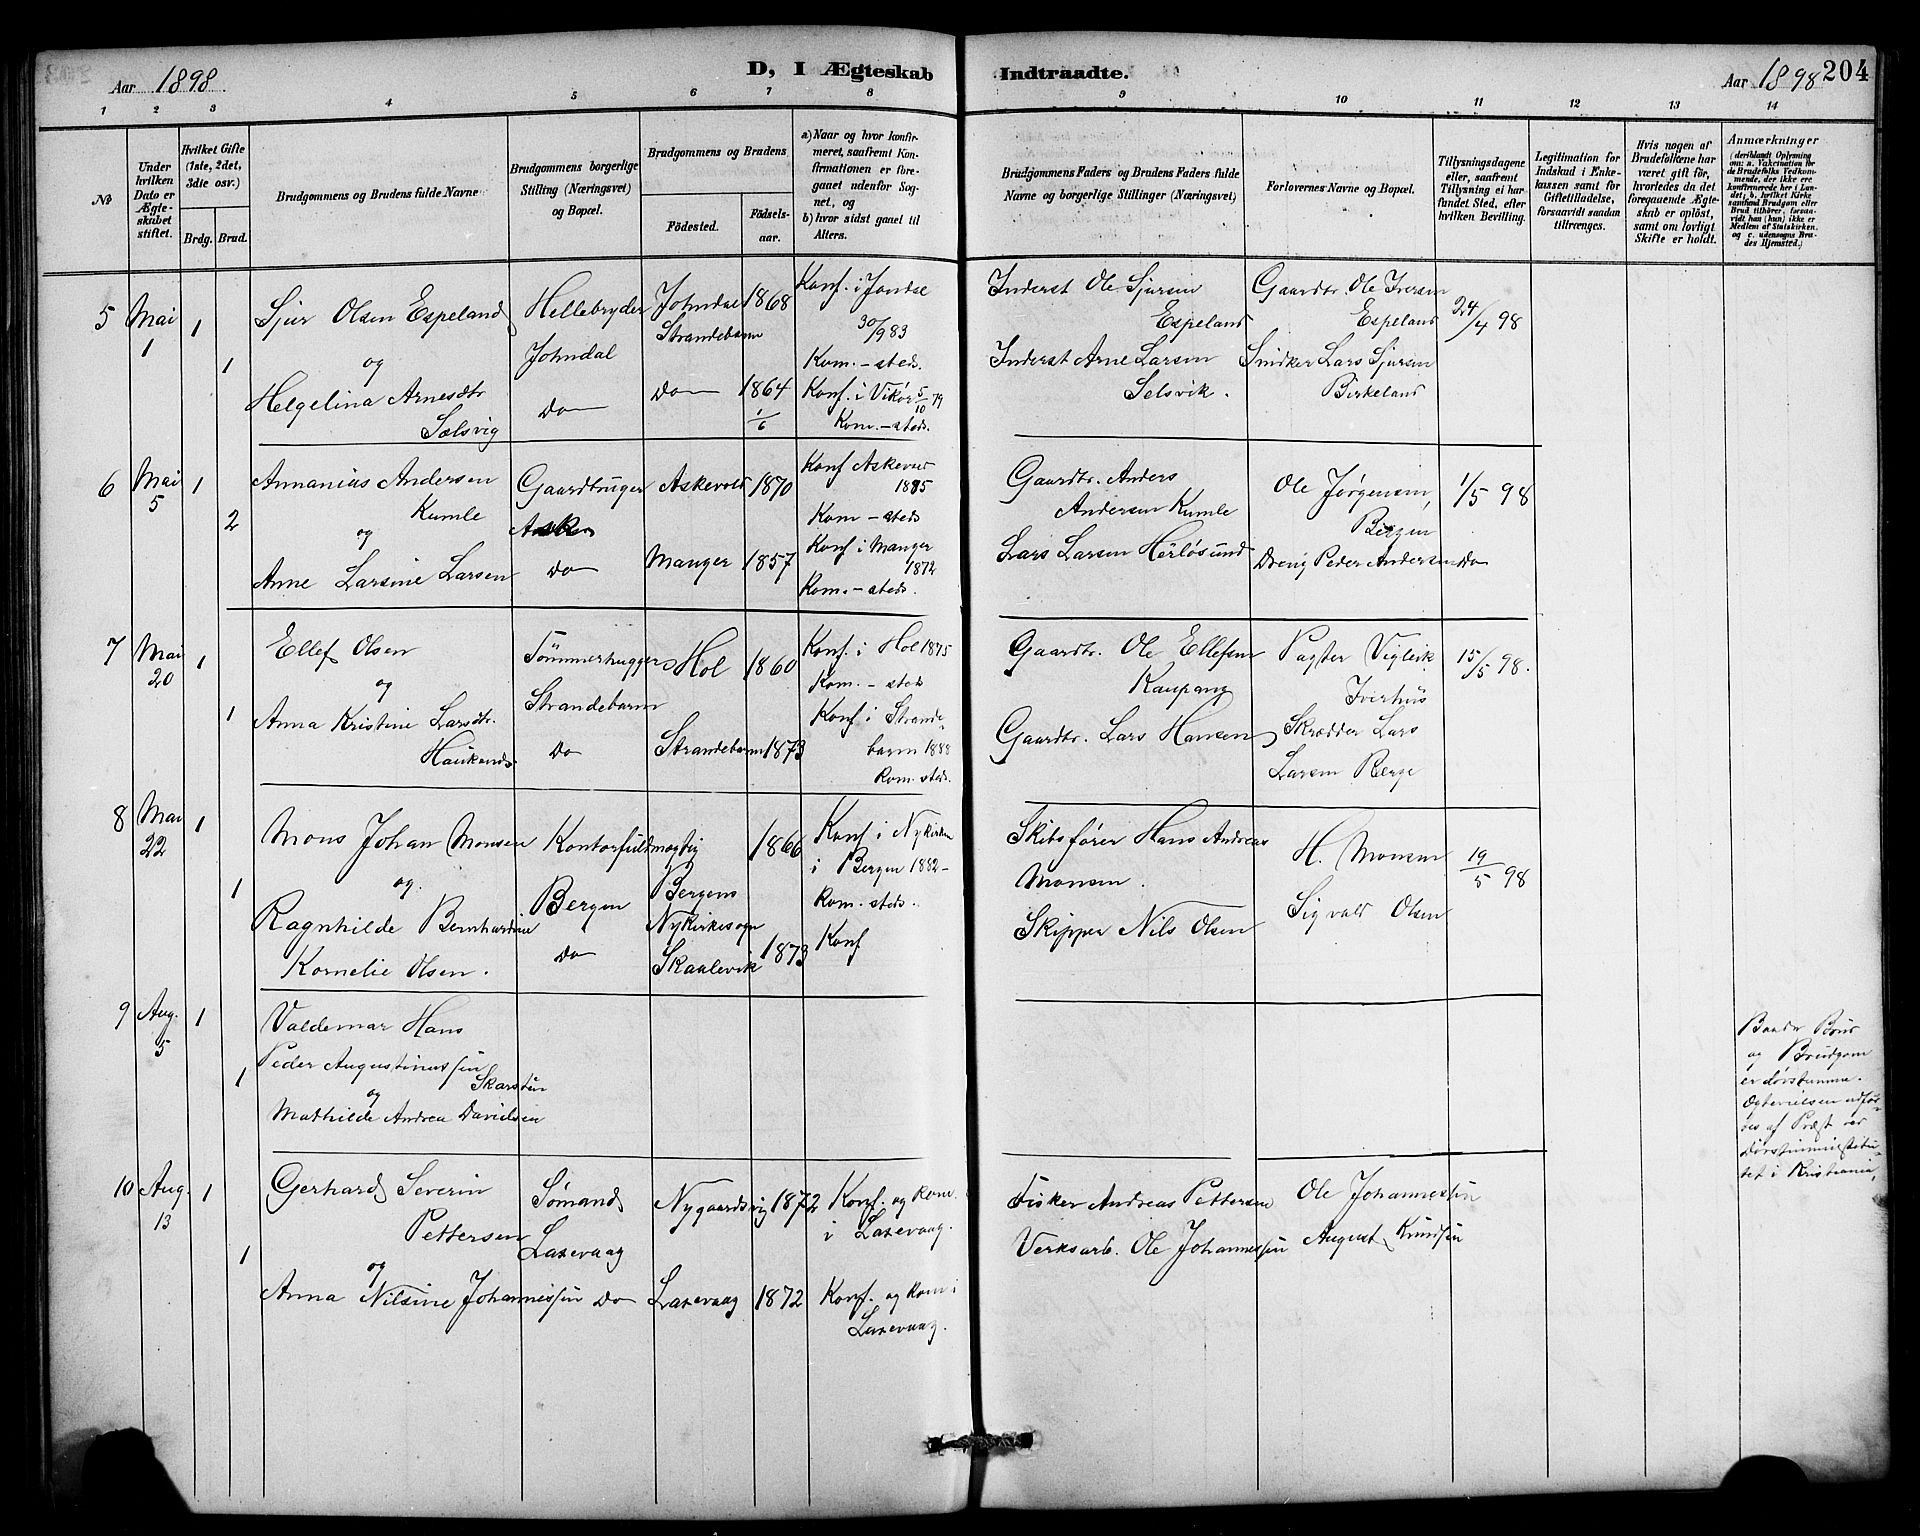 Aar 1898.
D, I Ægteskab
Indtraadte.
Aar 1898 204
1 2 3 4 5 6 7 8 9 10 11 12 13 14
No
Under hvilken Dato er Ægteskabet stiftet.
Hvilket Gifte (1ste, 2det, 3die osv.)
Brdg. Brud.
Brudgommens og Brudens fulde Navne
Brudgommens borgerlige Stilling (Næringsvei) og Bopæl.
Brudgommens og Brudens
Födested.
Födselsaar.
a) Naar og hvor konfirmeret, saafremt Konfirmationen er foregaaet udenfor Sognet, og
b) hvor sidst gaaet til Alters.
Brudgommens Faders og Brudens Faders fulde Navne og borgerlige Stillinger (Næringsvei)
Forlovernes Navne og Bopæl.
Tillysningsdagene eller, saafremt Tillysning ei har fundet Sted, efter hvilken Bevilling.
Legitimation for Indskud i Enkekassen samt for Giftetilladelse, forsaavidt saadan tiltrænges.
Hvis nogen af Brudefolkene har været gift før, hvorledes da det foregaaende Ægteskab er oplöst, samt om lovligt Skifte er holdt.
Anmærkninger
(deriblandt Oplysning om: a. Vakcination for de Brudefolks Vedkommende, der ikke ere konfirmerede her i Landet; b. hvilket Kirkesamfund Brudgom eller Brud tilhörer, forsaavidt han (hun) ikke er Medlem af Statskirken, og c. udensogns Brudes Hjemsted.)
5 Mai 1
1
1
Sjur Olsen Espeland
og
Helgelina Arnesdtr
Sælsvig
Hellebryder
Johndal
Do
Johndal
Strandebarm
Do
1868
1864
1/6
Konf. i Jondal
30/9 83
Kom. - steds.
Konf. i Vikør 5/10 79
Kom. - steds.
Inderst Ole Sjursen
Espeland
Inderst Arne Larsen
Selsvik.
Gaardbr. Ole Iversen
Espeland
Snidker Lars Sjursen
Birkeland
24/4 98
6 Mai 5
1
2
Annanias Andersen
Kumle
og
Anne Larsine Larsen
Gaardbruger
Do
Askevold
Manger
1870
1857
Konf Askevold
1885
Kom - steds
Konf i Manger
1872
Kom. - steds.
Gaardbr. Anders
Andersen Kumle
Lars Larsen Herløsund
Ole Jørgensen,
Bergen
Dreng Peder Andersen Do
1/5 98
7 Mai 20
1
1
Ellef Olsen
og
Anna Kristine Larsdtr.
Tømmerhugger
Strandebarm
Do
Hol
Strandebarm
1860
1873
Konf. i Hol 1875
Kom. - steds
Konf i Strandebarm 1888
Kom. steds.
Gaardbr. Ole Ellefsen
Kaupang
Gaardbr. Lars Hansen
Vigleik
Skrædder Lars
Larsen Berge
15/5 98.
8 Mai 22
1
1
Mons Johan Monsen
og.
Ragnhilde Bernhardine
Kornelie Olsen.
Kontorfuldmægtig
Bergen
Do
Bergens
Nykirkesogn
Skaalevik
1866
1873
Konf i Nykirken
i Bergen 1882 -
Kom. steds.
Konf
Skibsfører Hans Andreas
Monsen.
Skipper Nils Olsen
H. Monsen
Sigvald Olsen
19/5 98
9 Aug. 5
1
1
Valdemar Hans
Peder Augustinussen
Skarsten
og
Mathilde Andrea Davidsen
Baade Brud
og Brudgom
er døvstumme.
udføres af Præst ved
Døvstuminstitutet i Kristiania,
10 Aug. 13
1
1
Gerhard Severin
Pettersen
og
Anna Nilsine Johannessen
Sømand
Laxevaag
Do
Nygaardsvig
Laxevaag
1872
1872
Konf. og Kom.
i Laxevaag.
Konf. og Kom i
Laxevaag.
Fisker Andreas Pettersen
Verksarb. Ole Johannessen
Ole Johannessen
August Knudsen